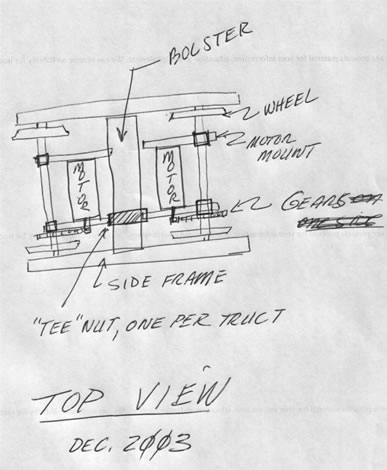 BOLSTER
WHEEL
MOTOR
MOUNT
MOTOR
MOTOR
GEARS ON
ONE SIDE
SIDE FRAME
"TEE" NUT, ONE PER TRUCT
TOP VIEW
DEC. 2003